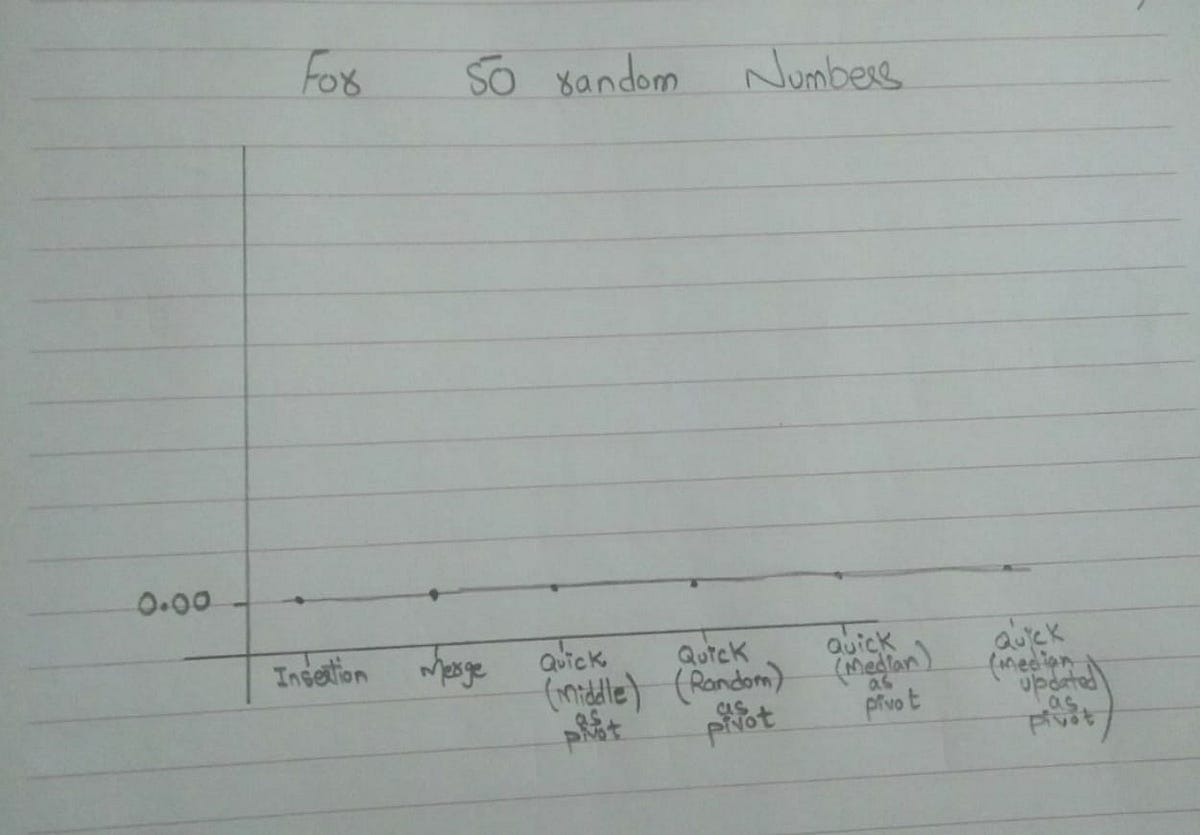 For 50 random Numbers
0.00
Insertion
Merge
Quick
(Middle)
as
pivot
Quick
(Random)
as
pivot
Quick
(Median)
as
pivot
Quick
(median
updated
as
pivot)